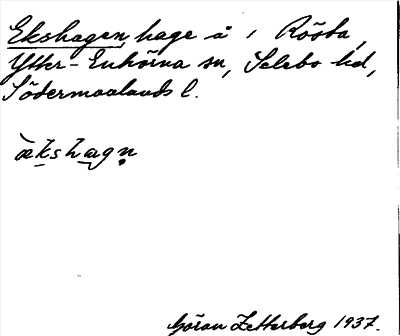 Ekshagen, hage å 1 Rösta,
Ytter-Enhörna sn, Selebo hd,
Södermanlands l.
ækshagn̥
Göran Zetterberg 1937.